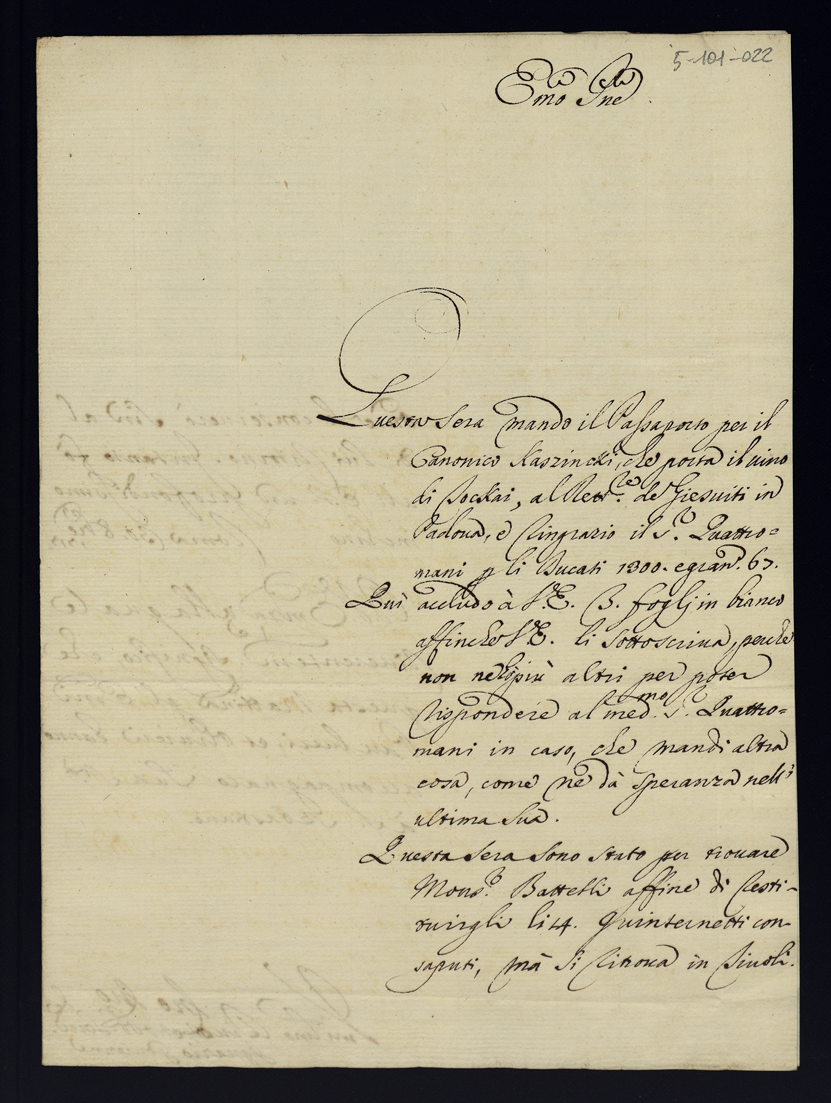 5-101-022
Emo Sne.
Questa sera mando il Passaporto per il
Canonico Kaszincki, che porta il vino
di Tockai, al Rett.re de Giesuiti in
Padova, e ringrazio il S.r Quattro=
mani p li Ducati 1300. e gran. 67.
Quì accludo à V.E. 3. foglj in bianco
affinche V.E. li sottoscriva, perche
non ne hò più altri per poter
rispondere al med.mo S.r Quattro=
mani in caso, che mandi altra
cosa, come ne dà speranza nell'
ultima sua.
Questa sera sono stato per trovare
Mons.r Battelli affine di resti-
tuirgli li 4. Quinternetti con-
saputi, mà si ritrova in Tivoli.